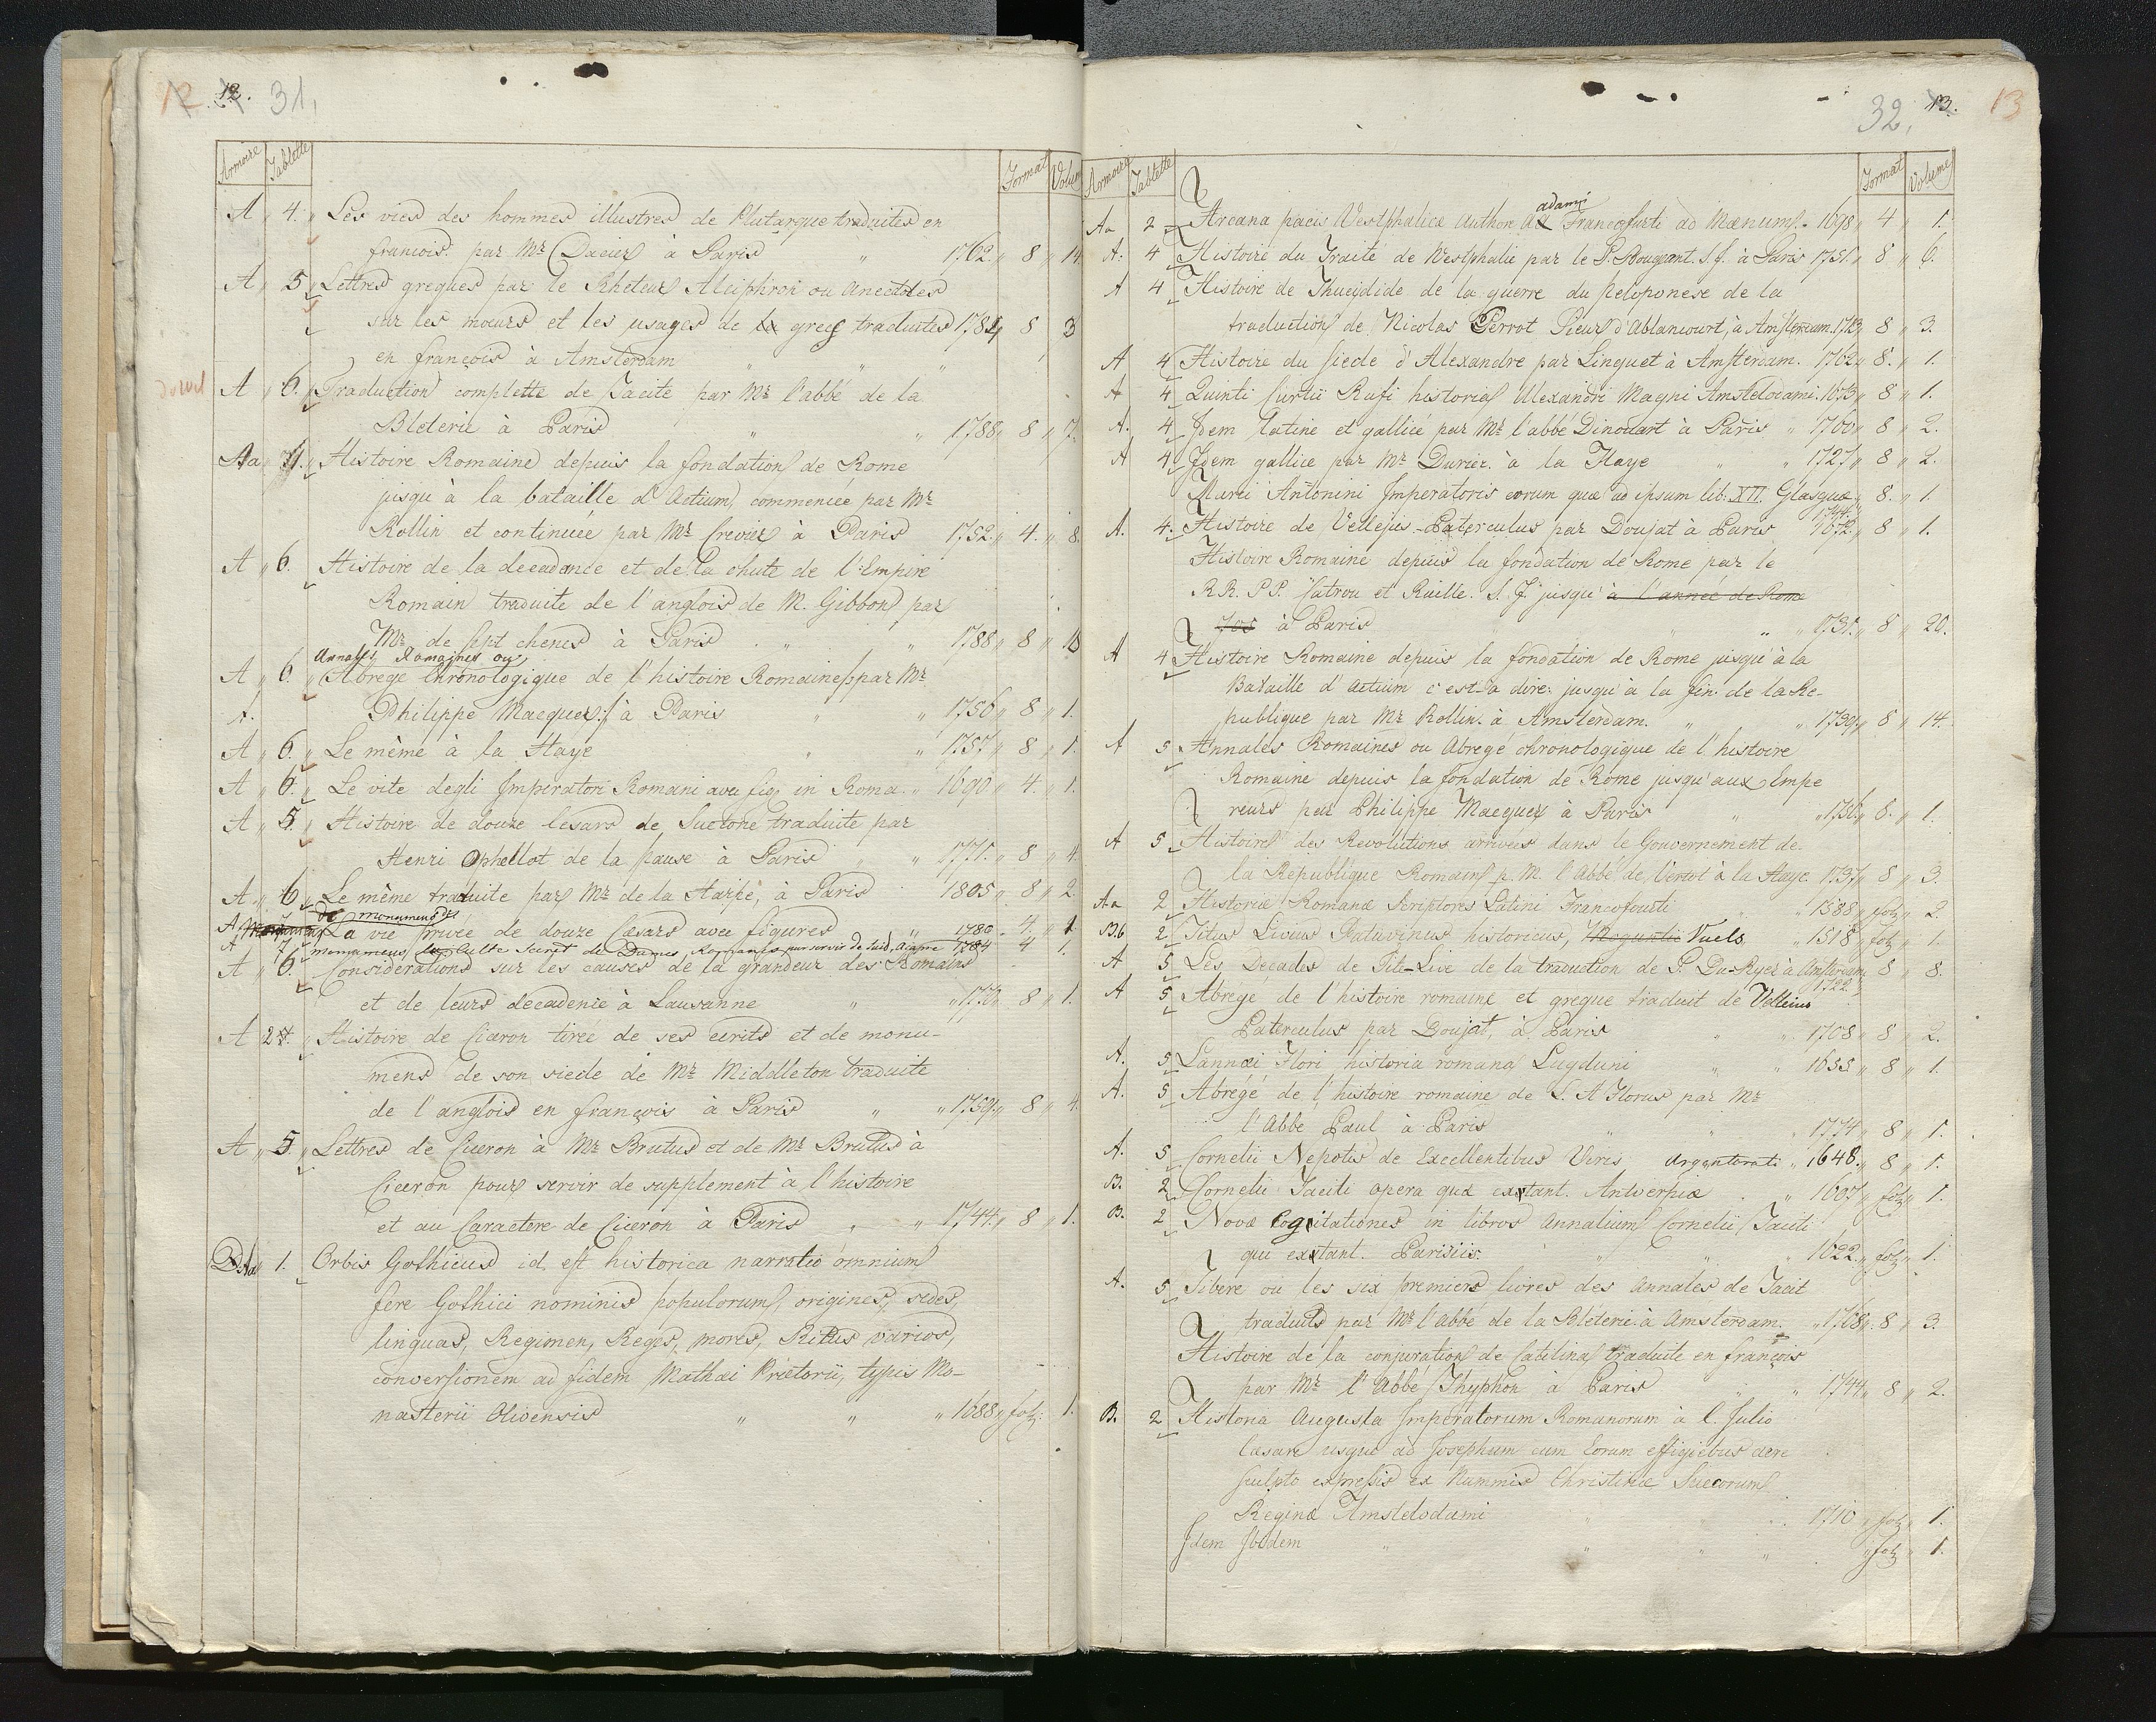 12. 12. 31.
Armoire Tablette Format Volume
A " 4. " Les vies des hommes illustres de Plutarque traduites en
francois. par Mr Dacier à Paris " 1762. " 8 " 14.
A " 5 " Lettres greques par le Rheteur Alciphron ou Anecdotes
sur les moeurs et les usages de la grec traduites 1784 " 8 3
en françois à Amsterdam " " "
A " 6. " Traduction complette de Tacite par Mr l'abbé de la
Bleterie à Paris " " 1788 " 8 " 7.
Aa " 1. " Histoire Romaine depuis la fondation de Rome
jusqu'à la bataille d'Actium, commencée par Mr
Rollin et continuée par Mr Crevier à Paris 1752. " 4. " 8.
A " 6. Histoire de la decadence et de la chute de l'Empire
Romain traduite de l'anglois de M. Gibbon par
Mr de Sept chenes à Paris " " 1788 " 8 " 18
Annales Romaines ou
A " 6. " Abregé Chronologique de l'histoire Romaine par Mr
A. Philippe Macquer à Paris " " 1756 " 8 " 1.
A " 6. " Le même à la Haye " " 1757 " 8 " 1.
A " 6. " Le vite degli Imperatori Romani avec fig. in Roma. " 1690 " 4. " 1.
A " 5. " Histoire de douze Cesars de Suetone traduite par
Henri Ophellot de la pause à Paris " " 1771. " 8 " 4.
A " 6 " Le même traduite par Mr de la Harpe, à Paris 1805 " 8 " 2
de monumens de
A La vie privée de douze Cæsars avec figures " 1780 " 4. " 1
A 7. Monumens du Culte Secret de Dames Romaines pur servir de suid, Acapre 1784 4 1.
A " 6. " Considerations sur les causes de la grandeur des Romains
et de leurs decadence à Lausanne " " 1770 " 8 " 1.
A 2 " Histoire de Ciceron tirée de ses ecrits et de monu-
mens de son siecle de Mr Middleton traduite
de l'anglois en françois à Paris " " 1759. " 8 " 4.
A " 5. " Lettres de Ciceron à Mr Brutus et de Mr Brutus à
Ciceron pour servir de supplement à l'histoire
et au Caractere de Ciceron à Paris " " 1744. " 8 " 1.
Aa " 1. Orbis Gothicus id. est historica narratio omnium
fere Gothici nominis populorum, origines, sedes,
linguas, Regimen, Reges, mores, Ritus varios,
conversionem ad fidem Mathæi Prætorii, typis Mo-
nasterii Olivensis " " " 1688 " fol: 1.
32. 13. 13
Armoire Tablette Format Volume
adami
Aa 2 Arcana pacis Westphalicæ Authore Francofurti ad Mænum. 1698 " 4 " 1.
A. 4 Histoire du Traité de Westphalie par le P. Bougeant. S.J. à Paris 1751. " 8 " 6.
A 4 Histoire de Thucydide de la guerre du Peloponese de la
traduction de Nicolas Perrot Sieur d'Ablancourt, à Amsterdam. 1713 " 8 " 3.
A 4 Histoire du siecle d'Alexandre par Linguet à Amsterdam. 1762 " 8. " 1.
A 4 Quinti Curtii Rufi historia Alexandri Magni Amstelodami. 1673 " 8 " 1.
A. 4 Idem latine et gallice par Mr l'abbé Dinouart à Paris " 1760 " 8 " 2.
A 4 Idem gallice par Mr Durier. à la Haye " " 1727 " 8 " 2.
Marci Antonini Imperatoris eorum quæ ad ipsum lib: XII. Glasguæ 1744. " 8. " 1.
A. 4. Histoire de Vellejus-Paterculus par Doujat à Paris 1672. " 8 " 1.
Histoire Romaine depuis la fondation de Rome par le
RR. PP. Catrou et Ruille. S.J. jusqu' à l'année de Rome
705 à Paris " " " 1731. " 8 " 20.
A 4 Histoire Romaine depuis la fondation de Rome jusqu'à la
Bataille d'Actium c'est-à dire: jusqu'à la fin de la Re-
publique par Mr Rollin. à Amsterdam. " " 1739. " 8 " 14.
A 5 Annales Romaines ou Abregé chronologique de l'histoire
Romaine depuis la fondation de Rome jusqu'aux Empe
reurs par Philippe Macquer à Paris " " 1756. " 8. " 1.
A 5 Histoire des Revolutions arrivées dans le Gouvernement de
la République Romain p. M. l'Abbé de Vertot à la Haye 1737 " 8 " 3.
Aa 2 Historiæ Romanæ Scriptores Latini Francofourti " 1588 " fol " 2.
B.b 2 Titus Livius Patavinus historicus, Moguntii Vuels " 1518 " fol " 1.
A 5 Les Decades de Tite-Live de la traduction de P. Du-Ryer à Amsterdam 1722. 8 " 8.
A 5 Abregé de l'histoire romaine et greque traduit de Velleius
Paterculus par Doujat, à Paris " " 1708 " 8 " 2.
A. 5 L annæi Flori historia romana Lugduni " " 1655 " 8 " 1.
A. 5 Abregé de l'histoire romaine de L. A Florus par Mr
l'Abbe Paul à Paris " " 1774 " 8 " 1.
A. 5 Cornelii Nepotis de Excellentibus Viris Argentorati " 1648. " 8 " 1.
B. 2 Cornelii Taciti opera quæ extant. Antverpiæ . " 1607 " fol " 1.
B. 2 Novæ cogitationes in libros Annalium Cornelii Taciti
qui extant. Parisiis " " 1622. " fol " 1.
A. 5 Tibere ou les six premiers livres des Annales de Tacit
traduits par Mr l'Abbé de la Bléterie à Amsterdam. " 1768 " 8 " 3.
Histoire de la conjuration de Catilina traduite en françois
par Mr l'Abbé Thyphon à Paris " " 1744 " 8 " 2.
B. 2 Historia Augusta Imperatorum Romanorum à C. Julio
Cæsare usque ad Josephum cum Eorum effigiebus aere
sculpto expressis ex Nummis Christinæ Suecorum
Reginæ Amstelodami " " 1710 " fol " 1.
Idem Ibidem " " " " " fol " 1.